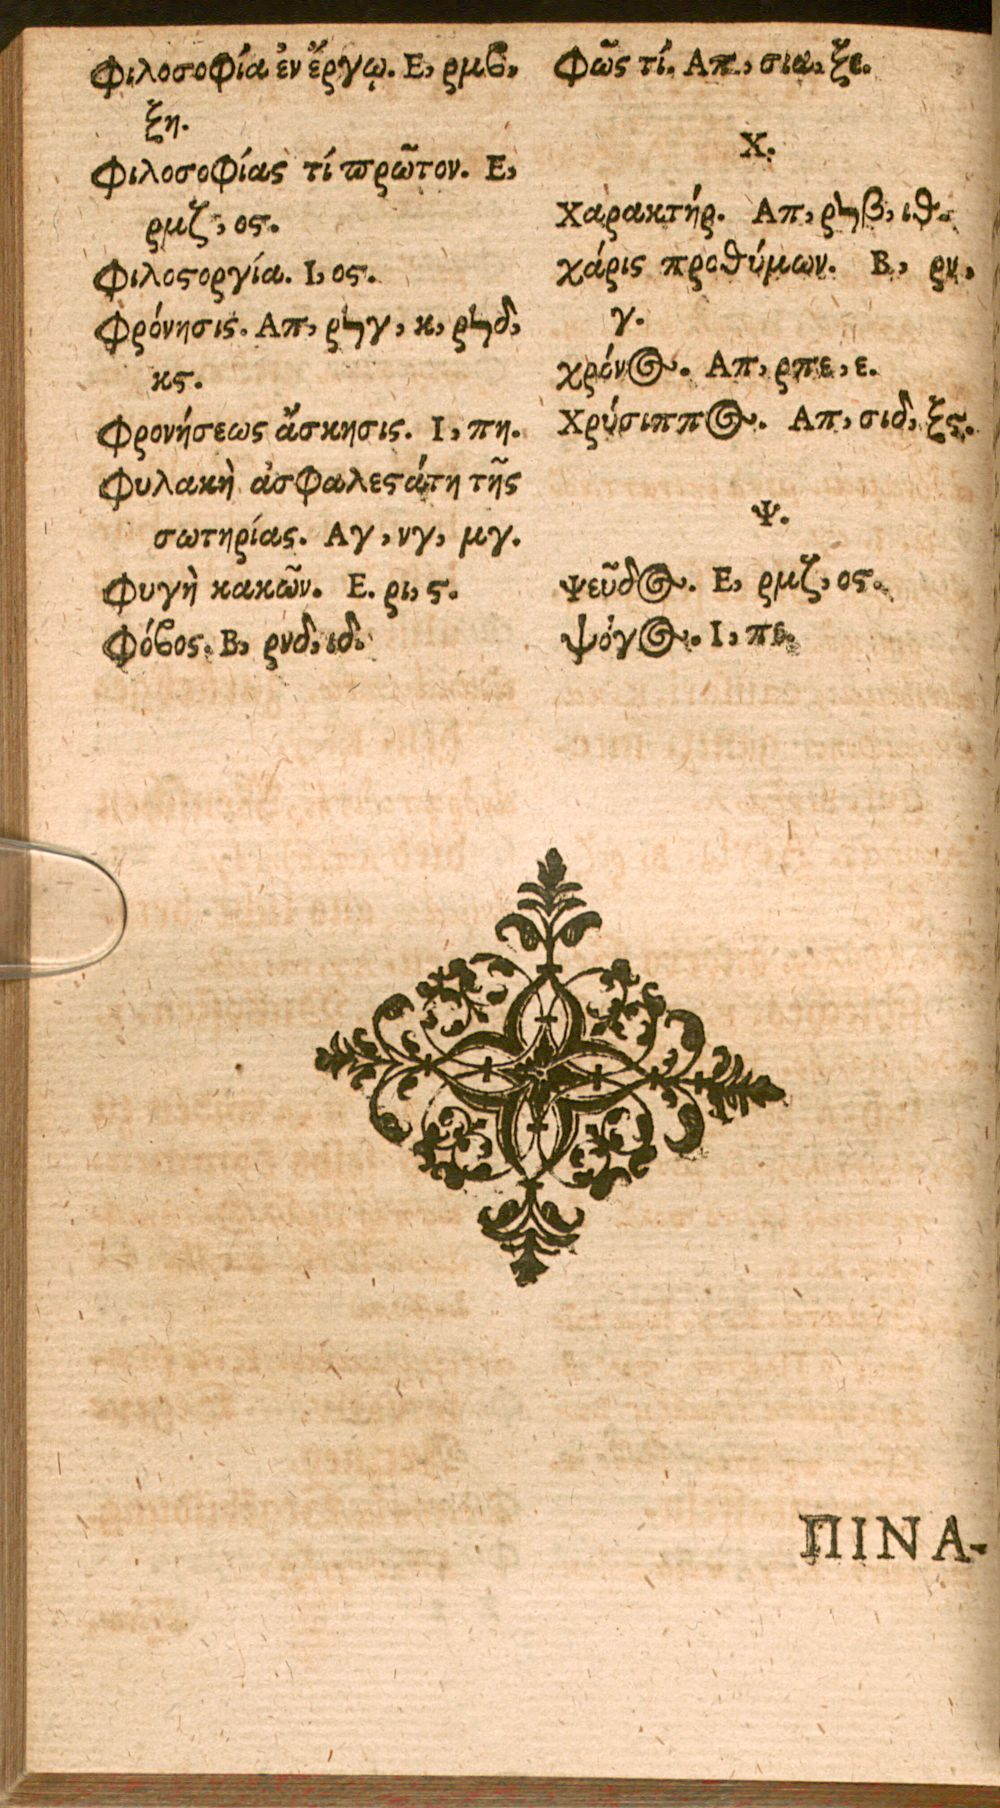 Φιλοσοφία ἐν ἔργῳ. Ε, ρμϐ,
ξη.
Φιλοσοφίας τί ϖρῶτον. Ε,
ρμζ, οϛ.
Φιλοϛοργία. Ι, οϛ.
Φρόνησις. Απ, ρϟγ, κ, ρϟδ,
κϛ.
Φρονήσεως ἄσκησις. Ι, πη.
Φυλακὴ ἀσφαλεϛάτη τῆς
σωτηρίας. Αγ, νγ, μγ.
Φυγὴ κακῶν. Ε. ρι, ϛ.
Φόϐος. Β, ρνδ, ιδ.
Φῶς τί. Απ, σια, ξε.
Χ.
Χαρακτήρ. Απ, ρϟβ, ιθ.
χάρις προθύμων. Β, ρν,
γ.
χρόνος. Απ, ρπε, ε.
Χρύσιππος. Απ, σιδ, ξϛ.
Ψ.
Ψεῦδος. Ε, ρμζ, οϛ.
ψόγος. Ι, πε.
ΠΙΝΑ-